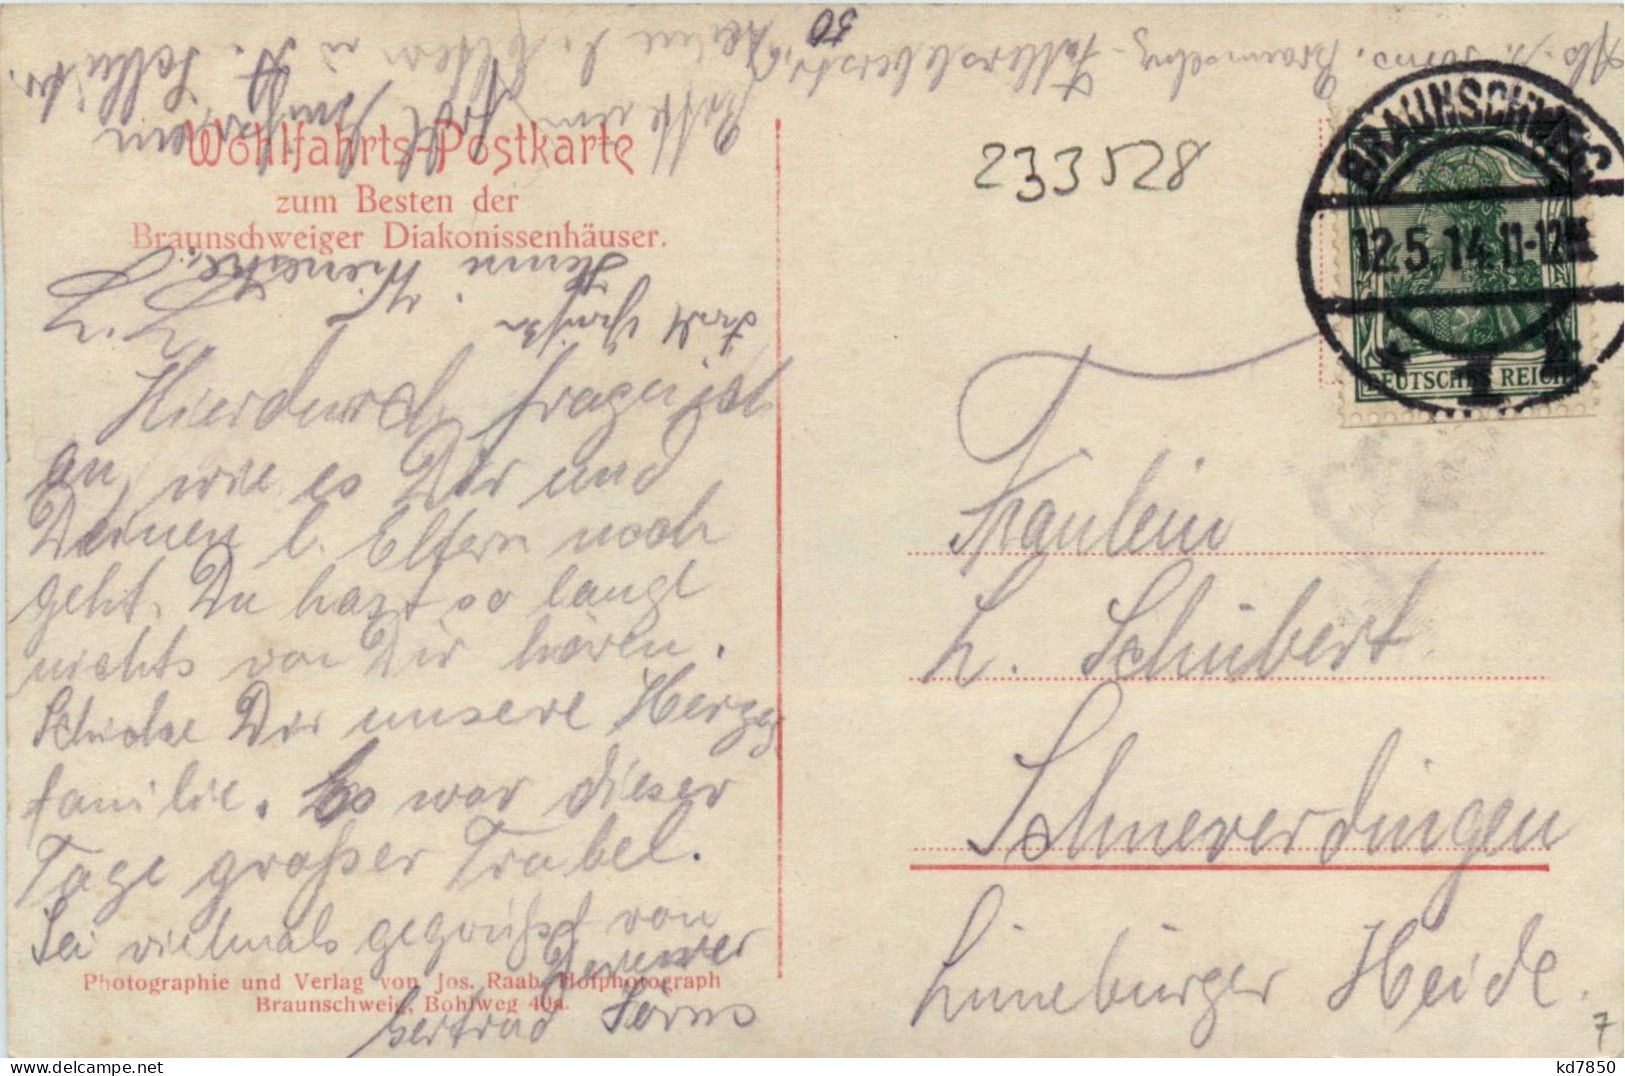 Wohlfahrts-Postkarte
zum Besten der
Braunschweiger Diakonissenhäuser.
233528
BRAUNSCHWEIG
12.5.14.11-12
DEUTSCHES REICH
Hierdurch frage ich
an, wie es Dir und
Deinen l. Eltern noch
geht. Du hast so lange
nichts von Dir hören.
Schicke Dir unsere Herzogs
familie. Es war dieser
Tage großer Trubel.
Sei vielmals gegrüßt von
Deiner
Gertrud Sörns
Photographie und Verlag von Jos. Raab, Hofphotograph
Braunschweig, Bohlweg 40a.
Fräulein
L. Schubert
Schneverdingen
Lüneburger Heide.
7
kd7850